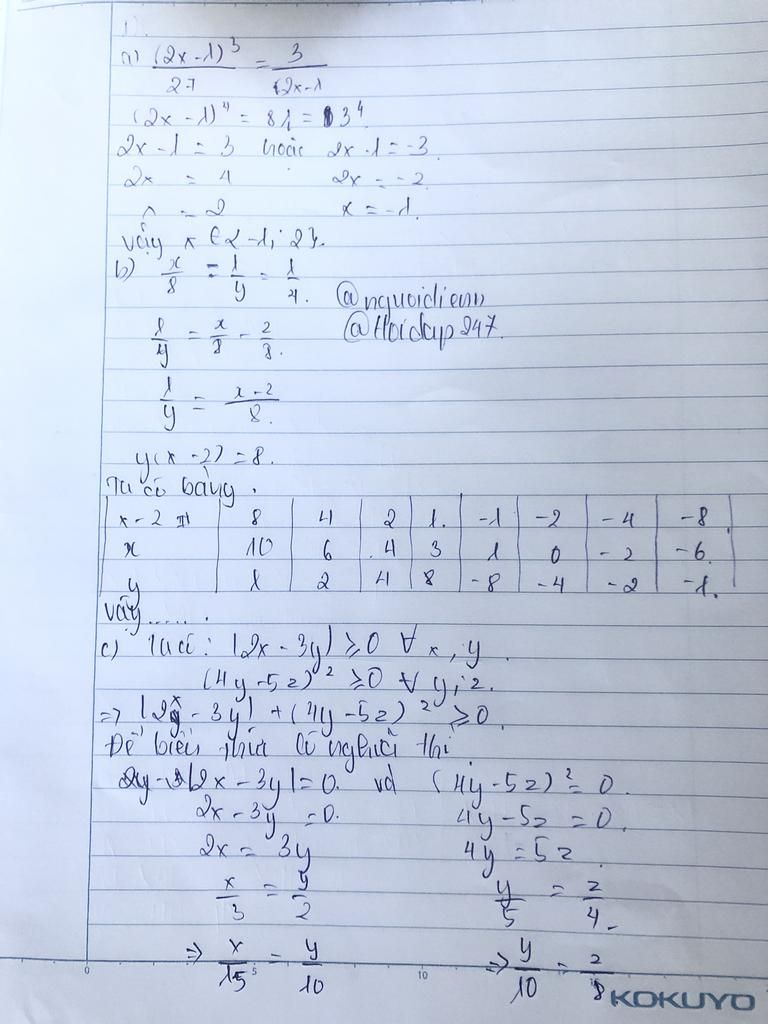 1).
a) (2x-1)³/27 = 3/(2x-1
(2x-1)⁴ = 81 = 3⁴.
2x-1 = 3 hoặc 2x-1 = -3.
2x = 4 2x = -2.
x = 2 x = -1.
vậy x ∈ {-1; 2}.
b) x/8 = 1/y = 1/4. @nguoidienn
1/y = x/8 - 2/8. @Hoidap247.
1/y = x-2/8.
y(x-2) = 8.
Ta có bảng.
x-2 | 8 | 4 | 2 | 1. | -1 | -2 | -4 | -8.
x | 10 | 6 | 4 | 3 | 1 | 0 | -2 | -6.
y | 1 | 2 | 4 | 8 | -8 | -4 | -2 | -1.
vậy......
c) Ta có: |2x-3y| ≥ 0 ∀ x, y.
(4y-5z)² ≥ 0 ∀ y; z.
=> |2x-3y| + (4y-5z)² ≥ 0.
Để biểu thức có nghĩa thì
|2x-3y| = 0. và (4y-5z)² = 0.
2x-3y = 0. 4y-5z = 0.
2x = 3y 4y = 5z.
x/3 = y/2 y/5 = z/4.
=> x/15 = y/10 => y/10 = z/8
0 5 10
KOKUYO